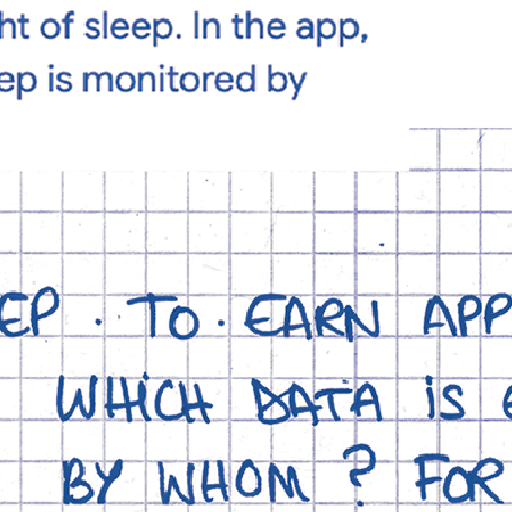 ht of sleep. In the app,
ep is monitored by
EP. TO. EARN APP
WHICH DATA is
BY WHOM? FOR